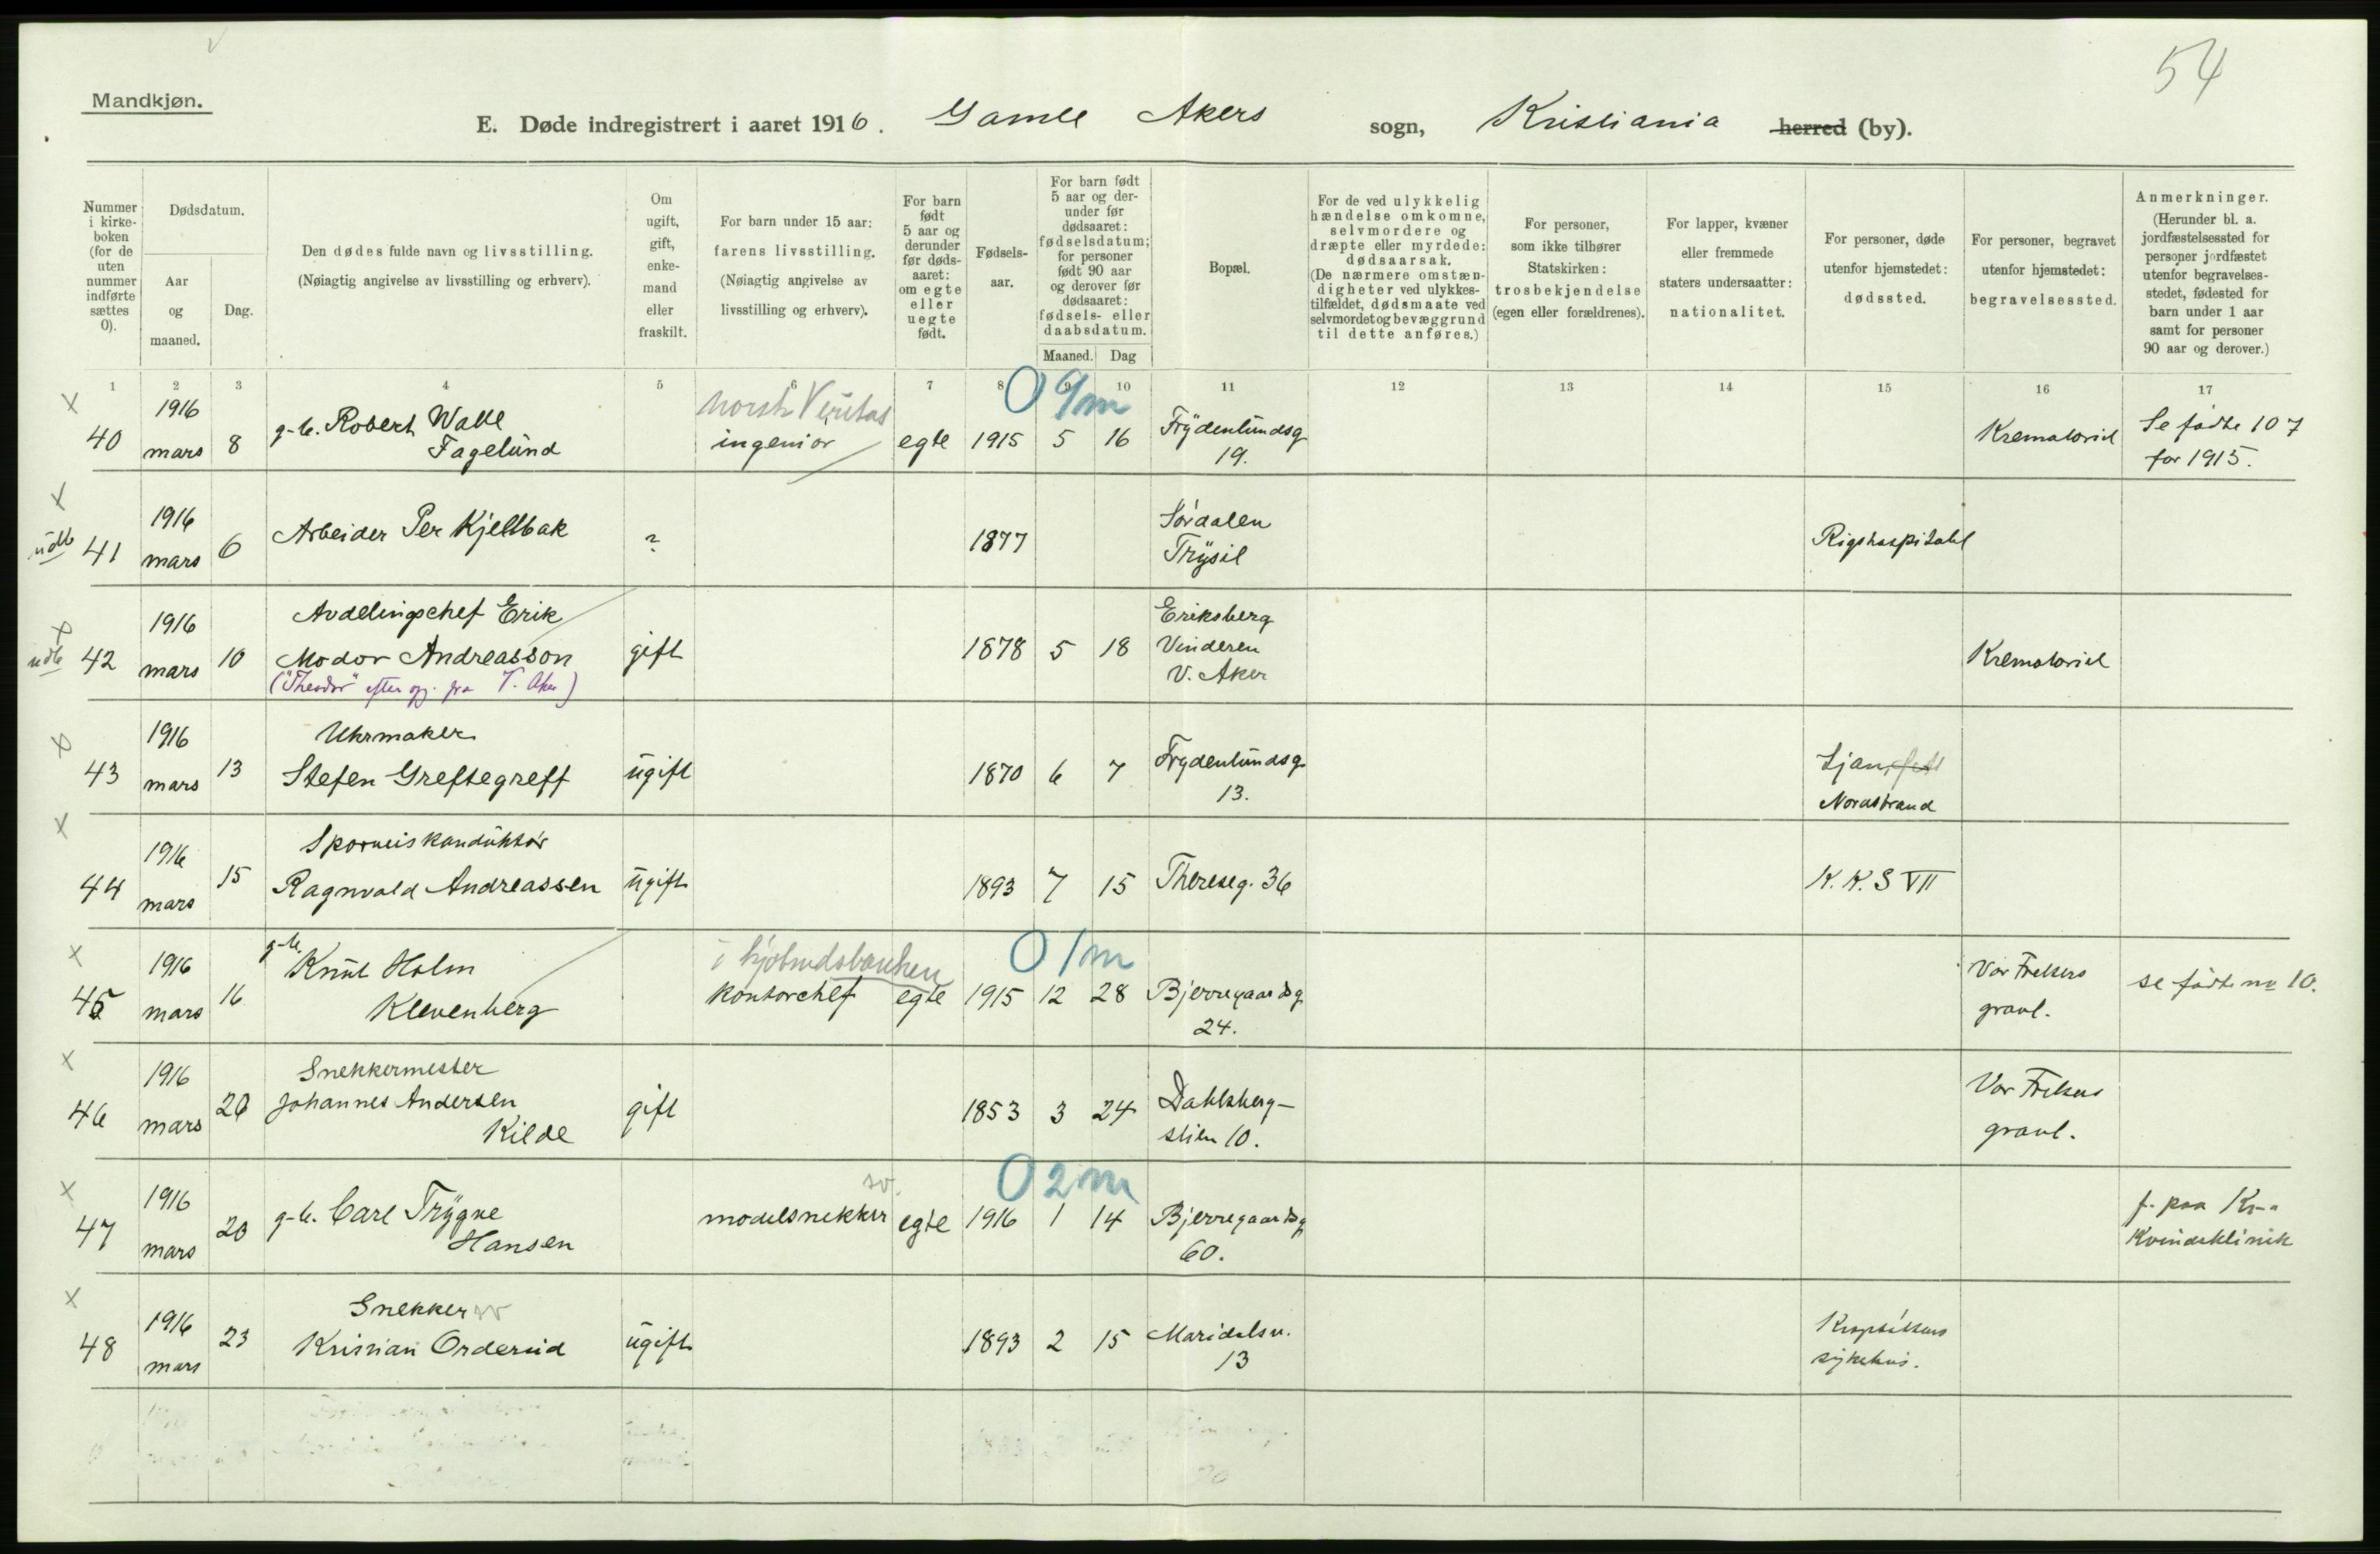 54
Mandkjøn.
E. Døde indregistrert i aaret 1916. Gamle Akers sogn, Kristiania herred (by).
Nummer i kirke-boken (for de uten nummer indførte sættes 0).
Dødsdatum.
Aar og maaned.
Dag.
Den dødes fulde navn og livsstilling.
(Nøiagtig angivelse av livsstilling og erhverv).
Om ugift, gift, enke-mand eller fraskilt.
For barn under 15 aar: farens livsstilling.
(Nøiagtig angivelse av livsstilling og erhverv).
For barn født 5 aar og derunder før døds-aaret: om egte eller uegte født.
Fødsels-aar.
For barn født 5 aar og der-under før dødsaaret: fødselsdatum; for personer født 90 aar og derover før dødsaaret: fødsels- eller daabsdatum.
Maaned. Dag
Bopæl.
For de ved ulykkelig hændelse omkomne, selvmordere og dræpte eller myrdede: dødsaarsak.
(De nærmere omstæn-digheter ved ulykkes-tilfældet, dødsmaate ved selvmordet og bevæggrund til dette anføres.)
For personer, som ikke tilhører Statskirken: trosbekjendelse (egen eller forældrenes).
For lapper, kvæner eller fremmede staters undersaatter: nationalitet.
For personer, døde utenfor hjemstedet: dødssted.
For personer, begravet utenfor hjemstedet: begravelsessted.
Anmerkninger.
(Herunder bl. a. jordfæstelsessted for personer jordfæstet utenfor begravelses-stedet, fødested for barn under 1 aar samt for personer 90 aar og derover.)
1 2 3 4 5 6 7 8 9 10 11 12 13 14 15 16 17
x 40 1916 mars 8 g-b. Robert Walle Fagelund norsk Veritas ingeniør egte 1915 5 16 0 9/m Frydenlundsg 19. Krematoriet Se fødte 107 for 1915.
x udb 41 1916 mars 6 Arbeider Per Kjellbak ? 1877 Sørdalen Trysil Rigshospitalet
x udb 42 1916 mars 10 Avdelingschef Erik Modor Andreasson gift 1878 5 18 Eriksberg Vinderen V. Aker Krematoriet
("Theodor" efter opg. fra V. Aker)
x 43 1916 mars 13 Uhrmaker Stefen Greftegreff ugift 1870 6 7 Frydenlundsg 13. Ljan, Nordstrand
x 44 1916 mars 15 Sporveiskonduktør Ragnvald Andreassen ugift 1893 7 15 Thereseg. 36 K. K. S VII
x 45 1916 mars 16 g-b. Knut Holm Klevenberg i kjøbmdsbanken kontorchef egte 1915 12 28 0 1m Bjerregaardsg 24. Vor Frelsers gravl. se fødte no 10.
x 46 1916 mars 20 Snekkermester Johannes Andersen Kilde gift 1853 3 24 Dahlsberg-stien 10. Vor Frelsers gravl.
x 47 1916 mars 20 g-b. Carl Trygve Hansen modelsnekker sv. egte 1916 1 14 0 2m Bjerregaardsg 60. f. paa Kr-a Kvindeklinik
x 48 1916 mars 23 Snekker sv Kristian Orderud ugift 1893 2 15 Maridalsv. 13 sykehus.